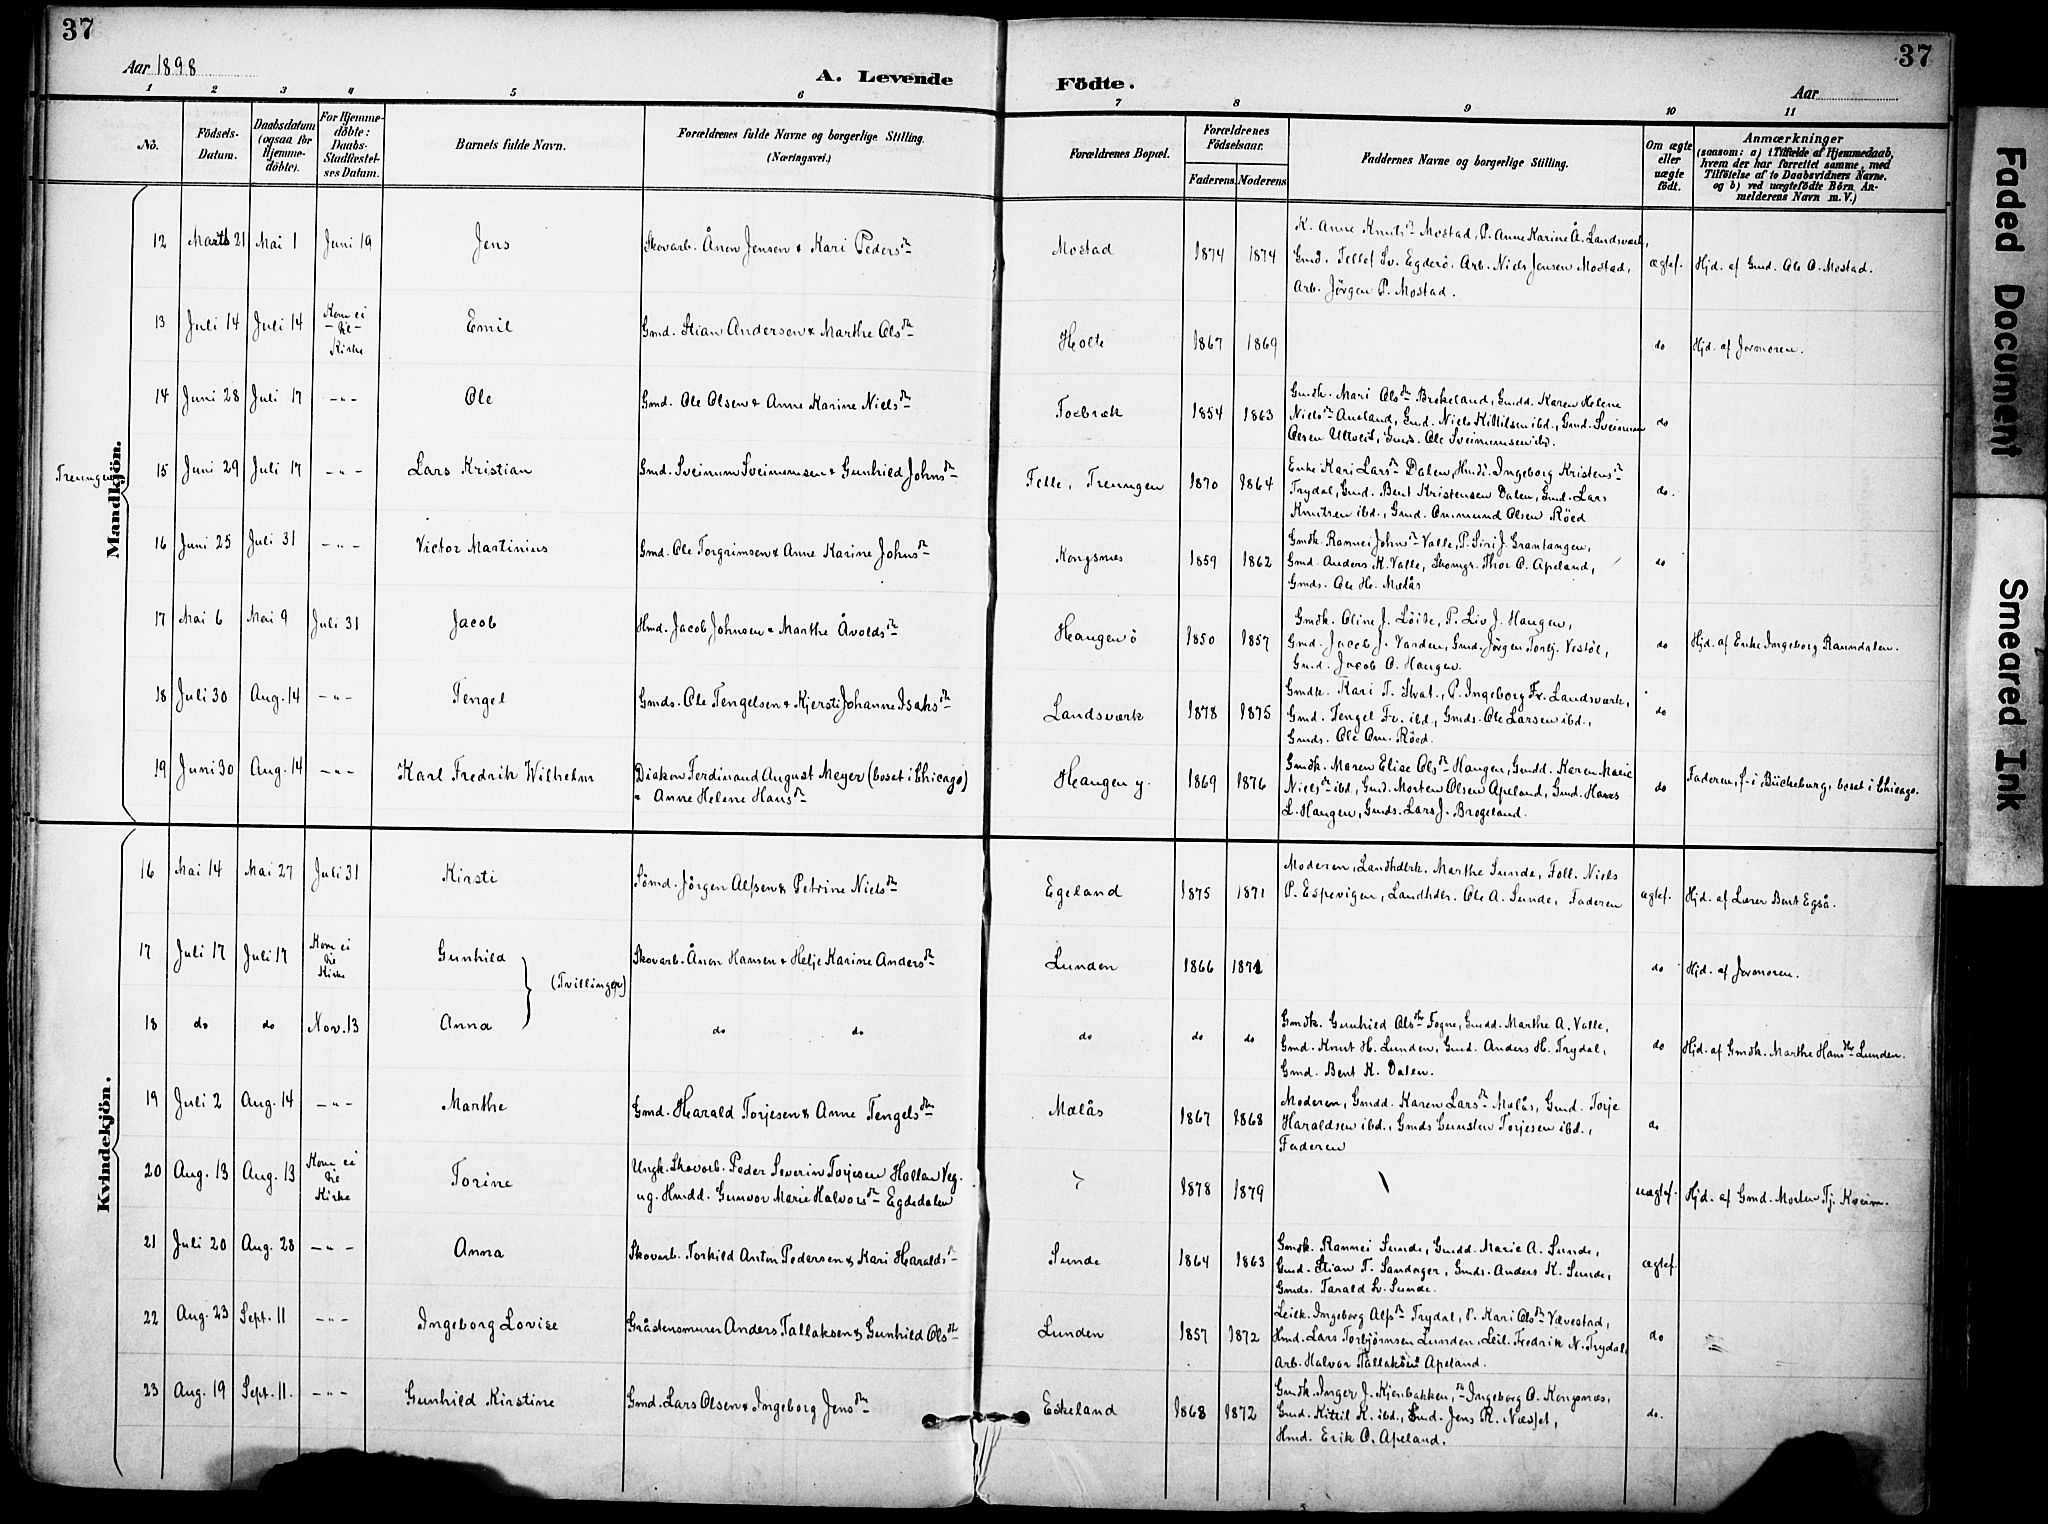 37
37
Aar 1898
A. Levende
Födte.
Aar
1 2 3 4 5 6 7 8 9 10 11
No.
Födsels-Datum.
Daabsdatum (ogsaa for Hjemme-döbte).
For Hjemme-döbte: Daabs-Stadfæstel-ses Datum.
Barnets fulde Navn.
Forældrenes fulde Navne og borgerlige Stilling. (Næringsvei.)
Forældrenes Bopæl.
Forældrenes Födselsaar.
Faderens. Moderens.
Faddernes Navne og borgerlige Stilling.
Om ægte eller uægte födt.
Anmærkninger
(saasom: a) i Tilfælde af Hjemmedaab, hvem der har forrettet samme, med Tilföielse af to Daabsvidners Navne. og b) ved uægtefödte Börn An-melderens Navn m. V.)
Mandkjön.
12 Marts 21 Mai 1 Juni 19 Jens Skovarb. Ånon Jensen & Kari Pedersdtr Mostad 1874 1874 K. Anne Knutsdtr Mostad, P. Anne Karine Å. Landsværk,
Gmd. Tellef Sv. Egderö, Arb. Niels Jensen Mostad,
Arb. Jörgen P. Mostad. ægtef. Hjd. af Gmd. Ole O. Mostad.
13 Juli 14 Juli 14 Kom ei til Kirke Emil Gmd. Stian Andersen & Marthe Olsdtr Holte 1867 1869 do Hjd. af Jormoren.
14 Juni 28 Juli 17 -"- Ole Gmd. Ole Olsen & Anne Karine Nielsdtr Foebræk 1854 1863 Gmdk. Mari Olsdtr Brekeland, Gmdd. Karen Helene
Nielsdtr Ausland, Gmd. Niels Kittilsen ibd., Gmd. Sveinum
Olsen Ultveit, Gmds. Ole Sveinumsen ibd. do
Treungen 15 Juni 29 Juli 17 -"- Lars Kristian Gmd. Sveinum Sveinumsen & Gunhild Johnsdtr Felle, Treungen 1870 1864 Enke Kari Larsdtr Dalen, Hmdd. Ingeborg Kristensdtr
Trydal, Gmd. Bent Kristensen Dalen, Gmd. Lars
Knutsen ibd., Gmd. Ommund Olsen Röed do.
16 Juni 25 Juli 31 -"- Victor Martinius Gmd. Ole Torgrimsen & Anne Karine Johnsdtr Kongsnes 1859 1862 Gmdk. Rannei Johnsdtr Valle, P. Siri J. Grantangen,
Gmd. Anders K. Valle, Skomgr. Thor O. Apeland,
Gmds. Ole H. Mælås do
17 Mai 6 Mai 9 Juli 31 Jacob Hmd. Jacob Johnsen & Marthe Åvoldsdtr Haugen ö 1850 1857 Gmdk. Oline J. Löite, P. Liv J. Haugen,
Gmd. Jacob J. Varden, Gmd. Jörgen Torbj. Vestöl,
Gmd. Jacob O. Haugen. do Hjd. af Enke Ingeborg Ramndalen.
18 Juli 30 Aug. 14 -"- Tengel Gmds. Ole Tengelsen & Kjersti Johanne Isaksdtr Landsværk 1878 1875 Gmdk. Kari T. Strat., P. Ingeborg Fr. Landsværk,
Gmd. Tengel Fr. ibd., Gmds. Ole Larsen ibd.,
Gmds. Ole Om. Röed. do
19 Juni 30 Aug. 14 -"- Karl Fredrik Wilhelm Diakon Ferdinand August Meyer (boset i Chicago)
& Anne Helene Hansdtr Haugen y. 1869 1876 Gmdk. Maren Elise Olsdtr Haugen, Gmdd. Karen Marie
Nielsdtr ibd., Gmd. Morten Olsen Apeland, Gmd. Hans
L. Haugen, Gmds. Lars J. Brogeland. do Faderen, f. i Bückeburg, boset i Chicago.
Kvindekjön.
16 Mai 14 Mai 27 Juli 31 Kirsti Sömd. Jörgen Alfsen & Petrine Nielsdtr Egeland 1875 1871 Moderen, Landhdlerk. Marthe Sunde, Foll. Niels
P. Espevigen, Landhdlr. Ole A. Sunde, Faderen ægtef. Hjd. af Lærer Bent Egså.
17 Juli 17 Juli 17 Kom ei til Kirke Gunhild (Tvillinger) Skovarb. Ånon Hansen & Helje Karine Andersdtr Lunden 1866 1871 do Hjd. af Jormoren.
18 do do Nov. 13 Anna do do do do do Gmdk. Gunhild Olsdtr Fogne, Gmdd. Marthe A. Valle,
Gmd. Knut H. Lunden, Gmd. Anders H. Trydal,
Gmd. Bent K. Dalen. do Hjd. af Gmdk. Marthe Hansdtr Lunden.
19 Juli 2 Aug. 14 -"- Marthe Gmd. Harald Torjesen & Anne Tengelsdtr Mælås 1867 1868 Moderen, Gmdd. Karen Larsdtr Mælås, Gmd. Torje
Haraldsen ibd., Gmds Gunsten Torjesen ibd.,
Faderen do
20 Aug. 13 Aug. 13 Kom ei til Kirke Torine Ungk. Skovarb. Peder Severin Torjesen Hallan Veg.
ug. Hmdd. Gunvor Marie Halvorsdtr Egdedalen 1878 1879 uægtef. Hjd. af Gmd. Morten Tj. Kveim.
21 Juli 20 Aug. 28 -"- Anna Skovarb. Torkild Anton Pedersen & Kari Haraldsdtr Sunde 1864 1863 Gmdk. Rannei Sunde, Gmdd. Marie A. Sunde,
Gmd. Stian T. Sandager, Gmds. Anders K. Sunde,
Gmds. Tarald Lv. Sunde. ægtef.
22 Aug. 23 Sept. 11 -"- Ingeborg Lovise Gråstensmurer Anders Tallaksen & Gunhild Olsdtr Lunden 1857 1872 Leilk. Ingeborg Alfsdtr Trydal, P. Kari Olsdtr Vævestad,
Hmd. Lars Torbjörnsen Lunden, Leil. Fredrik N. Trydal,
Arb. Halvor Tallaksen Apeland. do
23 Aug. 19 Sept. 11. -"- Gunhild Kirstine Gmd. Lars Olsen & Ingeborg Jensdtr Eskeland 1868 1872 Gmdk. Inger J. Kjenbakken, Ingeborg O. Kongsnæs,
Gmd. Kittil K. ibd., Gmd. Jens R. Næsset,
Hmd. Erik O. Apeland. do.
Faded Document
Smeared Ink